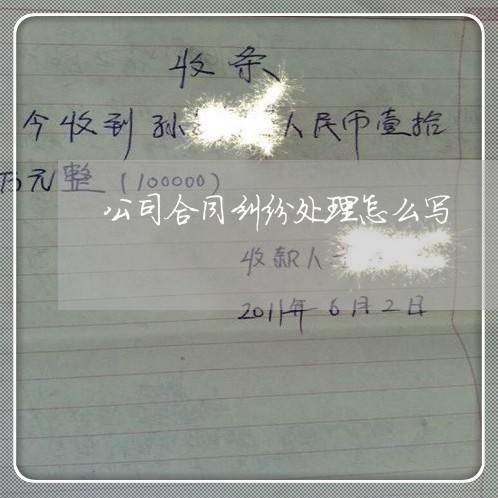 收条
今收到孙 人民币壹拾
万元整(100000)
公司合同纠纷处理怎么写
收款人
2011年6月2日